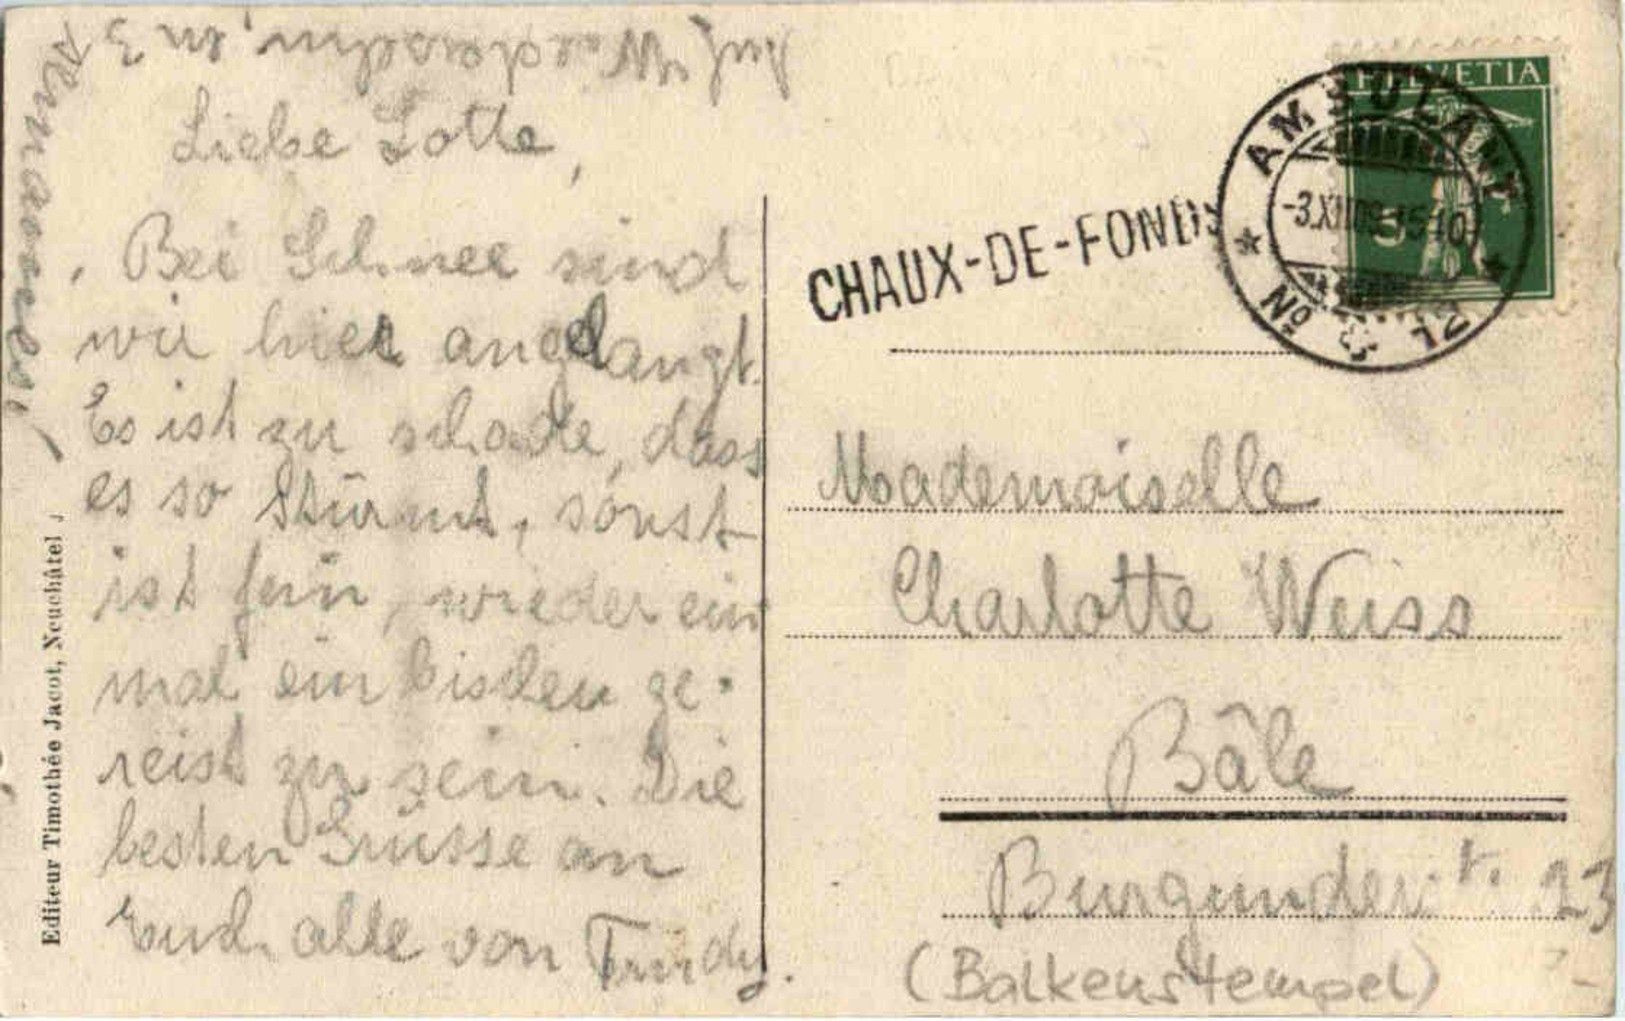 Auf Wiedersehn, in 3
Liebe Lotte,
Bei Schnee sind
wir hier angelangt.
Es ist zu schade, dass
es so stürmt, sonst
ist fein, wieder ein
mal ein bischen ge-
reist zu sein. Die
besten Grüsse an
Euch alle von Trudy.
Editeur Timothée Jacot, Neuchâtel
CHAUX-DE-FONDS
HELVETIA
5
AMBULANT
-3.XII.09.-15-10
No 12
Mademoiselle
Charlotte Weiss
Bâle
Burgunderst. 23
(Balkenstempel)